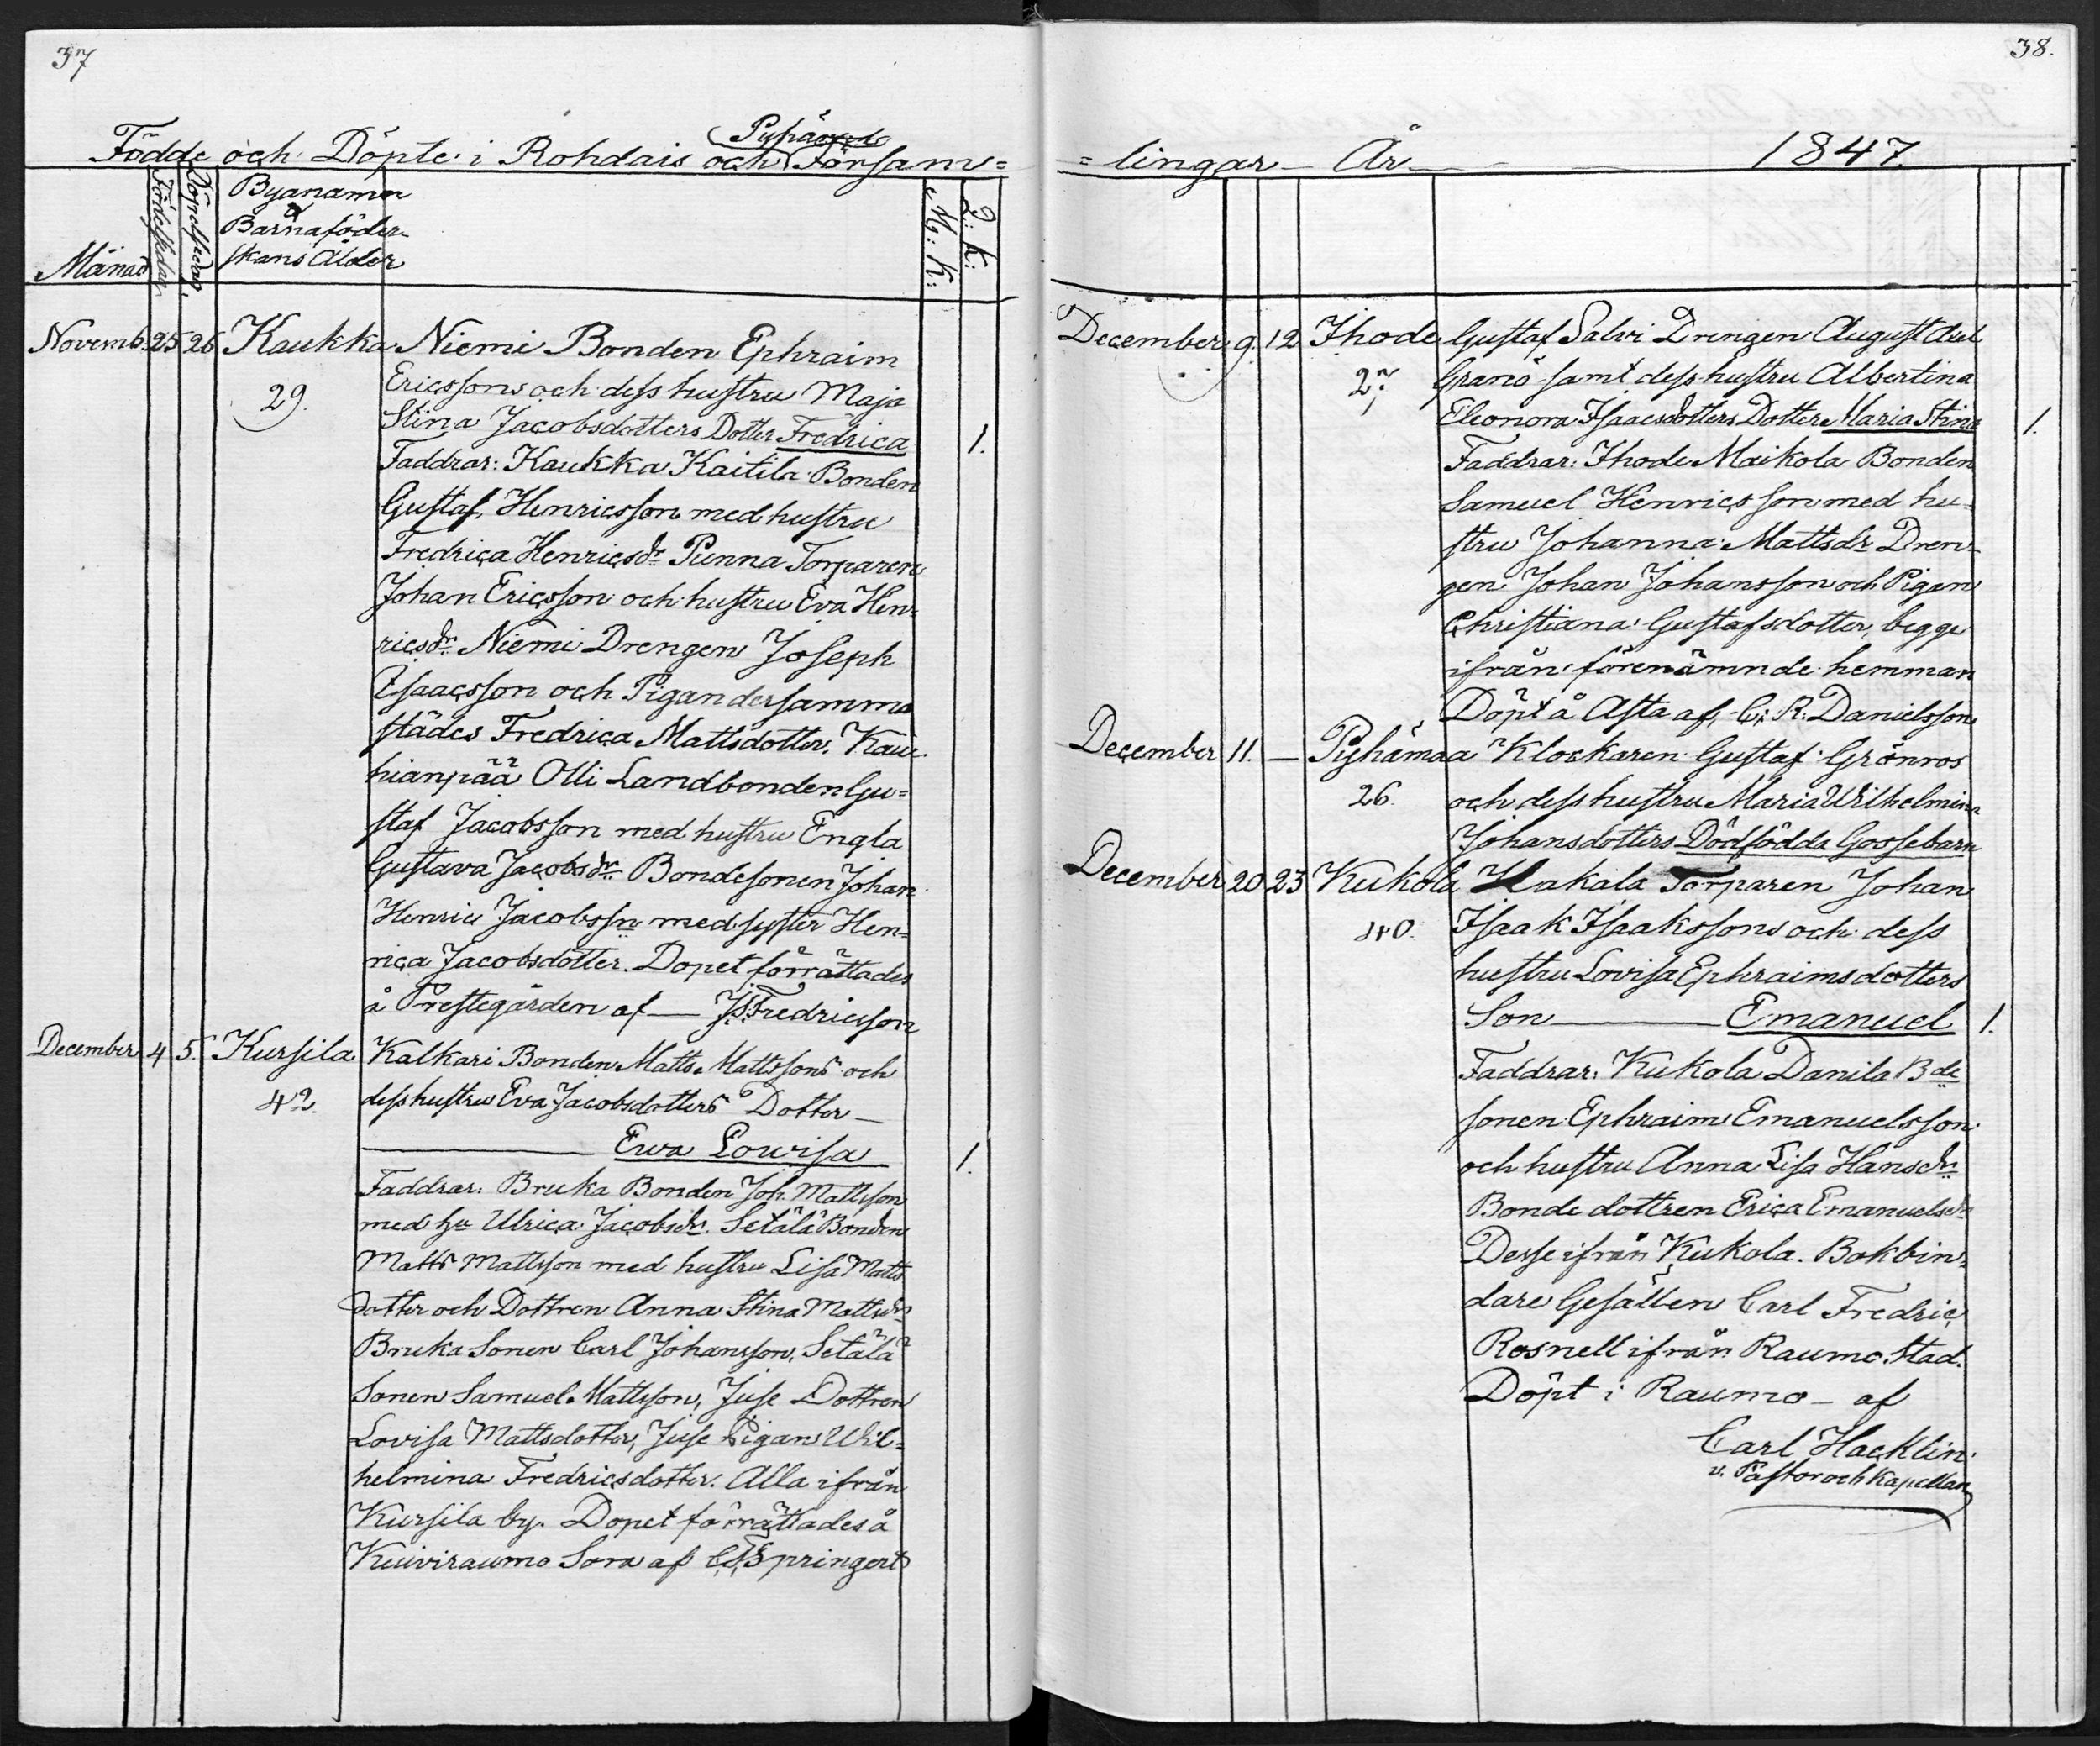 37
Pyhämaa
Födde och Döpte i Rohdais och Församl=
Månad
Födelsedag
Döpelsedag
Byanamn
&
Barnaföder-
skans Ålder
M: K:
Q: K:
Novemb. 25 26 Kaukka Niemi Bonden Ephraim
29. Ericssons och dess hustru Maja
Stina Jacobsdotters Dotter Fredrica 1.
Faddrar: Kaukka Kaitila Bonden
Gustaf Henricsson med hustru
Fredrica Henricsdr Punna Torparen
Johan Ericsson och hustru Eva Hen-
ricsdr Niemi Drengen Joseph
Isaacsson och Pigan dersamma
städes Fredrica Mattsdotter, Kau-
hianpää Olli Landbonden Gu=
staf Jacobsson med hustru Engla
Gustava Jacobsdr Bondesonen Johan
Henric Jacobssn med syster Hen=
rica Jacobsdotter. Dopet förrättades
å Prestegården af — J. Fredricsson
December 4 5. Kursila Kalkari Bonden Matts Mattssons och
42. dess hustru Eva Jacobsdotters Dotter —
— Ewa Lowisa 1.
Faddrar: Bruka Bonden Joh. Mattsson
med hu Ulrica Jacobsdr. Setälä Bonden
Matts Mattsson med hustru Lisa Matts
dotter och Dottren Anna Stina Mattsdr
Bruka Sonen Carl Johansson, Setälä
Sonen Samuel Mattsson, Juse Dottren
Lovisa Mattsdotter, Juse Pigan Wil=
helmina Fredricsdotter. Alla ifrån
Kursila by. Dopet förrättades å
Kuiviraumo Sora af Springert
38.
=lingar — År — 1847.
December 9. 12 Ihode Gustaf Salvi Drengen August Axel
27 Granö samt dess hustru Albertina
Eleonora Isaacsdotters Dotter Maria Stina 1.
Faddrar: Ihode Maikola Bonden
Samuel Henricsson med hu-
stru Johanna Mattsdr Dren-
gen Johan Johansson och Pigan
Christiana Gustafsdotter, begge
ifrån förenämnde hemman
Döpt å Asta af C: R: Danielsson
December 11. — Pyhämaa Klockaren Gustaf Grönroos
26. och dess hustru Maria Wilhelmina
Johansdotters Dödfödda Gossebarn
December 20 23 Kukola Hakala Torparen Johan
40. Isaak Isaakssons och dess
hustru Lovisa Ephraimsdotters
Son — Emanuel 1.
Faddrar: Kukola Danila Bde
sonen Ephraim Emanuelsson
och hustru Anna Lisa Hansdr
Bonde dottren Erica Emanuelsdr
Desse ifrån Kukola. Bokbin-
dare Gesällen Carl Fredric
Rosnell ifrån Raumo Stad.
Döpt i Raumo — af
Carl Hacklin
v. Pastor och Kapellan